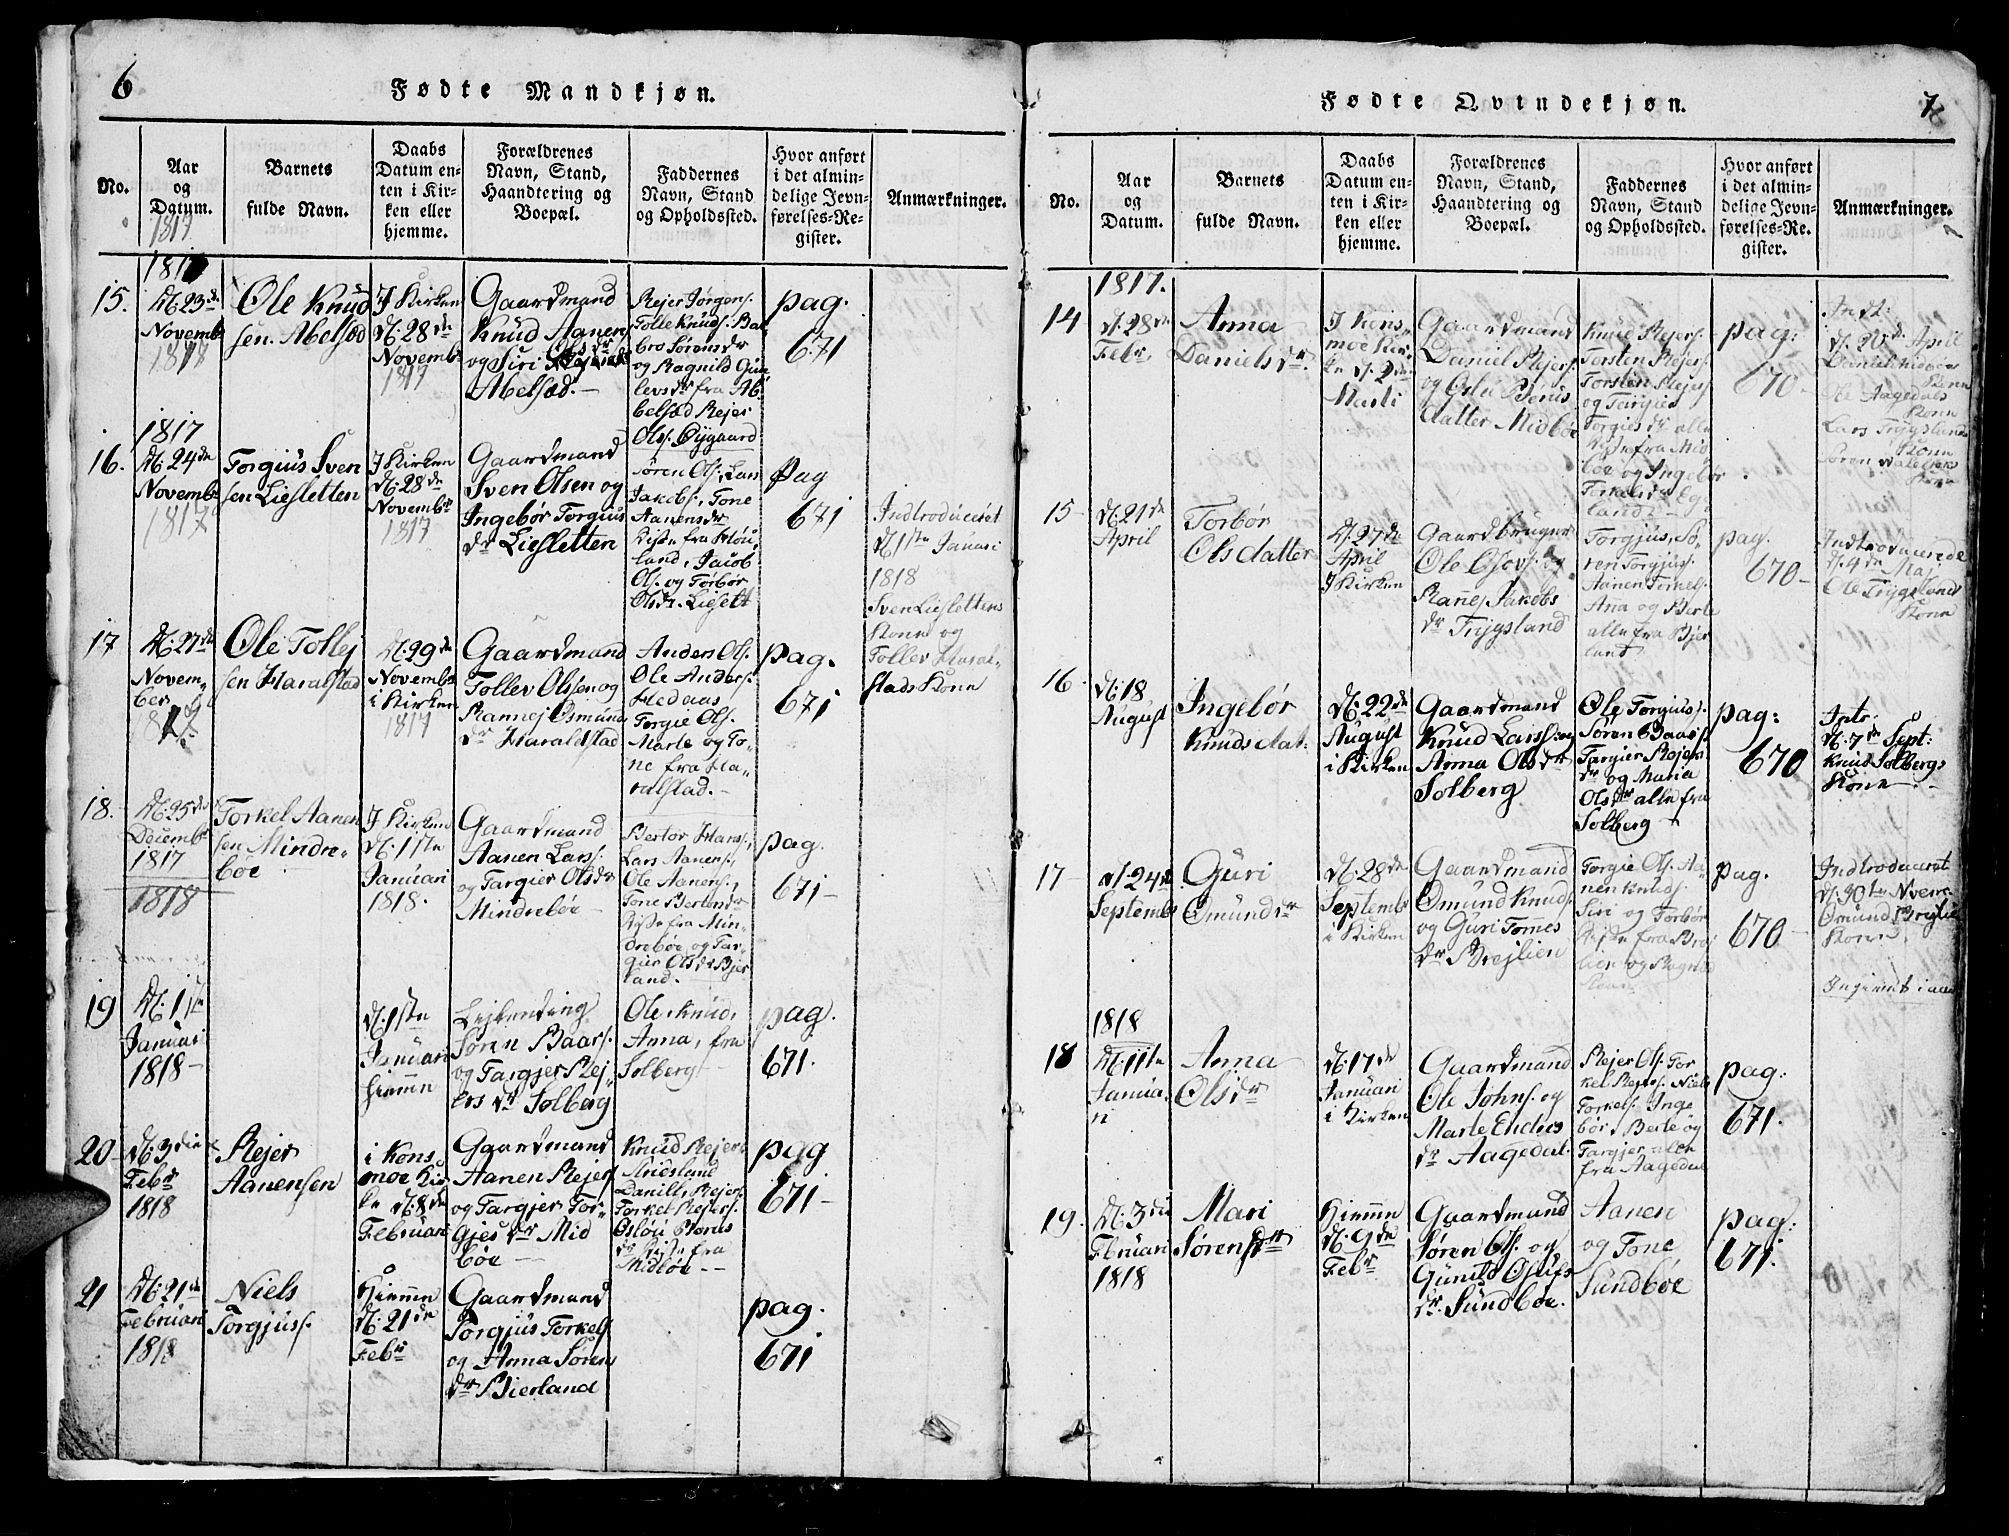 6
Fødte Mandkjøn.
No.
Aar
og
Datum.
1817
Barnets
fulde Navn.
Daabs
Datum en-
ten i Kir-
ken eller
hjemme.
Forældrenes
Navn, Stand,
Haandtering og
Boepæl.
Faddernes
Navn, Stand
og Opholdssted.
Hvor anført
i det almin-
delige Jevn-
førelses-Re-
gister.
Anmærkninger.
15.
1817
D. 23de
Novemb
1818
Ole Knud
sen Abelsæd
I Kirken
D. 28de
Novembr
1817
Gaardmand
Knud Aanen
og Siri
Abelsæd.
Rejer Jørgens.
Tolle Knuds. Bar
bro Sørensdr
og Ragnild Gun
levsdr fra Ab
belsæd Rejer
Ols. Øygaard
pag.
671
1817
16.
D. 24de
Novembr
1817
Torgius Sven
sen Liesletten
I Kirken
D. 28de
Novembr
1817
Gaardmand
Sven Olsen og
Ingebør Torgius
dr Liesletten
Søren Ols. Lars
Jakobs, Tone
Aanensdr
Kiste fra Høu
land, Jacob
Ols. og Torbør
Olsdr. Liesett
Pag
671
Indtroduceret
D. 1ste Januari
1818
Sven Lieslettens
Kone og
Tollev Haral-
stads Kone
17
D. 27de
Novem-
ber
Ole Tollej
sen Haralstad
D. 29de
Novembr
i Kirken
1817
Gaardmand
Tollev Olsen og
Rannej Osmuns
dr Haraldstad
Anders Ols.
Ole Anders.
Hedaas
Torgie Ols.
Marte og To-
ne fra Ha-
ralstad.
pag.
671
18.
D. 25de
Decembr
1817
1818
Torkel Aanen
sen Mindre-
bøe
I Kirken
D. 1ste
Januari
1818.
Gaardmand
Aanen Lars.
og Targier Olsdr
Mindrebøe
Bertor Hans.,
Lars Aanens.,
Ole Aanens.,
Tone Bertensdr
Kiste fra Min-
drebøe og Tar-
gier Olsdr Bjer
land.
pag.
671
19
D. 1ste
Januari
1818
D. 1ste
Januari
hiemm
Lejlending
Søren Baars.
og Targjer Rej-
ers dr Solberg
Ole, Knud,
Anna, fra
Solberg
pag.
671.
20
D. 3die
Febr
1818
Rejer
Aanensen
i Kons
moe Kir
ke D. 8de
Februari
Gaardmand
Aanen Rejers
og Targjer Tor-
gies dr Mid
bøe
Knud Rejer.
Daniel, Rejers.
Torkel Rejers.
Osløu Berus
dr Kiste fra
Midbøe
pag
671
21
D. 21de
Februari
1818
Niels
Torgjuss.
Hiemm
D. 21de
Febr
Gaardmand
Torgjus Torkels
og Anna Sørens
dr Bierland
pag.
671
7
Fødte Qvindekjøn.
No.
Aar
og
Datum.
Barnets
fulde Navn.
Daabs
Datum en-
ten i Kir-
ken eller
hjemme.
Forældrenes
Navn, Stand,
Haandtering og
Boepæl.
Faddernes
Navn, Stand
og Opholdssted.
Hvor anført
i det almin-
delige Jevn-
førelses-Re-
gister.
Anmærkninger.
1817.
14
D. 28de
Febr.
Anna
Danielsdr.
I Kons-
moe Kir-
ke D. 2den
Marti
Gaardmand
Daniel Rejers.
og Oslu Berus
datter Midbøe
Knud Rejers.
Torsten Rejers
Torsten Rejers
og Targier
Torgies dr alle
Kiste fra Mid
bøe og Ingebør
Torkelsdr Eg-
land
pag:
670
Indt:
D. 20de April
Daniel Midbøe
Kone
Ole Aagedals
Kone
Lars Trygslands
Kone
Søren
Kone
15
D. 21de
April
Torbør
Olsdatter
D. 27de
April
I Kirken
Gaardbruger
Ole Osovs. og
Ranej Jakobs
dr Trygsland
Torgjus, Sø-
ren Torgjuss.
Aanen Tomes.
Ana og Berte
alle fra Bjer
land
pag.
670
Indtroducerede
D. 4de Maj
Ole Trygsland
Kone
16
D. 18
August
Ingebør
Knudsdat-
D. 22de
August
i Kirken
Gaardmand
Knud Larss. og
Anna Olsdr
Solberg
Ole Torgiuss.
Søren Baars.
Targier Rejers
dr og Maria
Olsdr alle fra
Solberg
pag:
670
Intr:
D. 7de Sept:
Knud Solbergs
Kone
17
D. 24de
Septembr
Guri
Omundsdr
D. 28de
Septembr
i Kirken
Gaardmand
Omund Knuds.
og Guri Tommes
dr Brejlien
Torgie Ols. Aa-
nen Knuds.
Siri og Torbør
Kiste fra Brej
lien og Ragnild
pag.
670
Indtroduceret
D. 30te Nvemb
Omund Brejlie
Kone.
1818
18
D. 11te
Januari
Anna
Olsdr
D. 17de
Januari
i Kirken
Gaardmand
Ole Johns. og
Marte Enders
dr Aagedal
Rejer Ols. Tor
kel Rejers. Niels
Torkels. Inge
bør, Berte og
Targjer alle
fra Aagedal
pag:
671.
19.
D. 3die
Februari
1818
Mari
Sørensdr
Hiemm
D. 9de
Febr
Gaardmand
Søren Ols. og
Gunild Olufs
dr. Sundbøe.
Aanen
og Tone
Sundbøe
pag:
671.